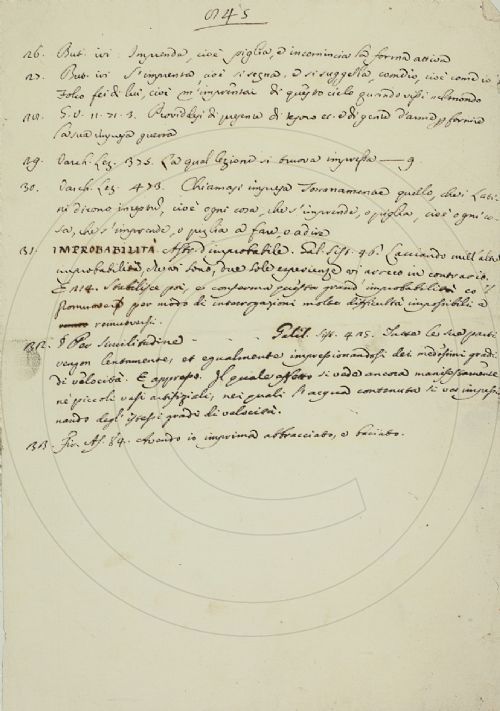 245
26. But. ivi: Imprenda, cioè piglia, e incomincia la forma attiva
27. But. ivi S'imprenta, cioè si segna, e si suggella, com'io, cioè come io
Tolto fei di lui, cioè m'imprentai di questo cielo quando vissi nel mondo
28. G. V. 11. 71. 3. Providdesi di pecunia di tesoro ec. e di gente d'arme p fornire
la sua impresa guerra
29. Varch. Lez. 375. La qual lezione si truova impressa — 9
30. Varch. Lez. 473. Chiamasi impresa Toscanamente quello, che i Lati-
ni dicono inceptum, cioè ogni cosa, che s'imprende, o piglia, cioè ogni co-
sa, che s'imprende, o piglia a fare, o a dire
31. IMPROBABILITÀ Astr. d'improbabile. Gal. Sist. 46. Cacciando nell'altra
improbabilità che vi sono, due sole esperienze vi arreco in contrario.
E 214. Stabilisce poi, e conferma questa grand'improbabilità co 'l
promuover per modo di interrogazioni molte difficultà impossibili a
removersi.
32. § Per Similitudine - - - Galil. Sist. 415. Tutte le sue parti
vengon lentamente, et egualmente impressionandosi dei medesimi gradi
di velocità. E appresso. Il quale effetto si vede ancora manifestamente
ne' piccoli vasi artifiziali, nei quali l'acqua contenuta si va impressio-
nando degl'istessi gradi di velocità.
33. Fir. As. 84. Avendo io imprima abbracciato, e baciato.